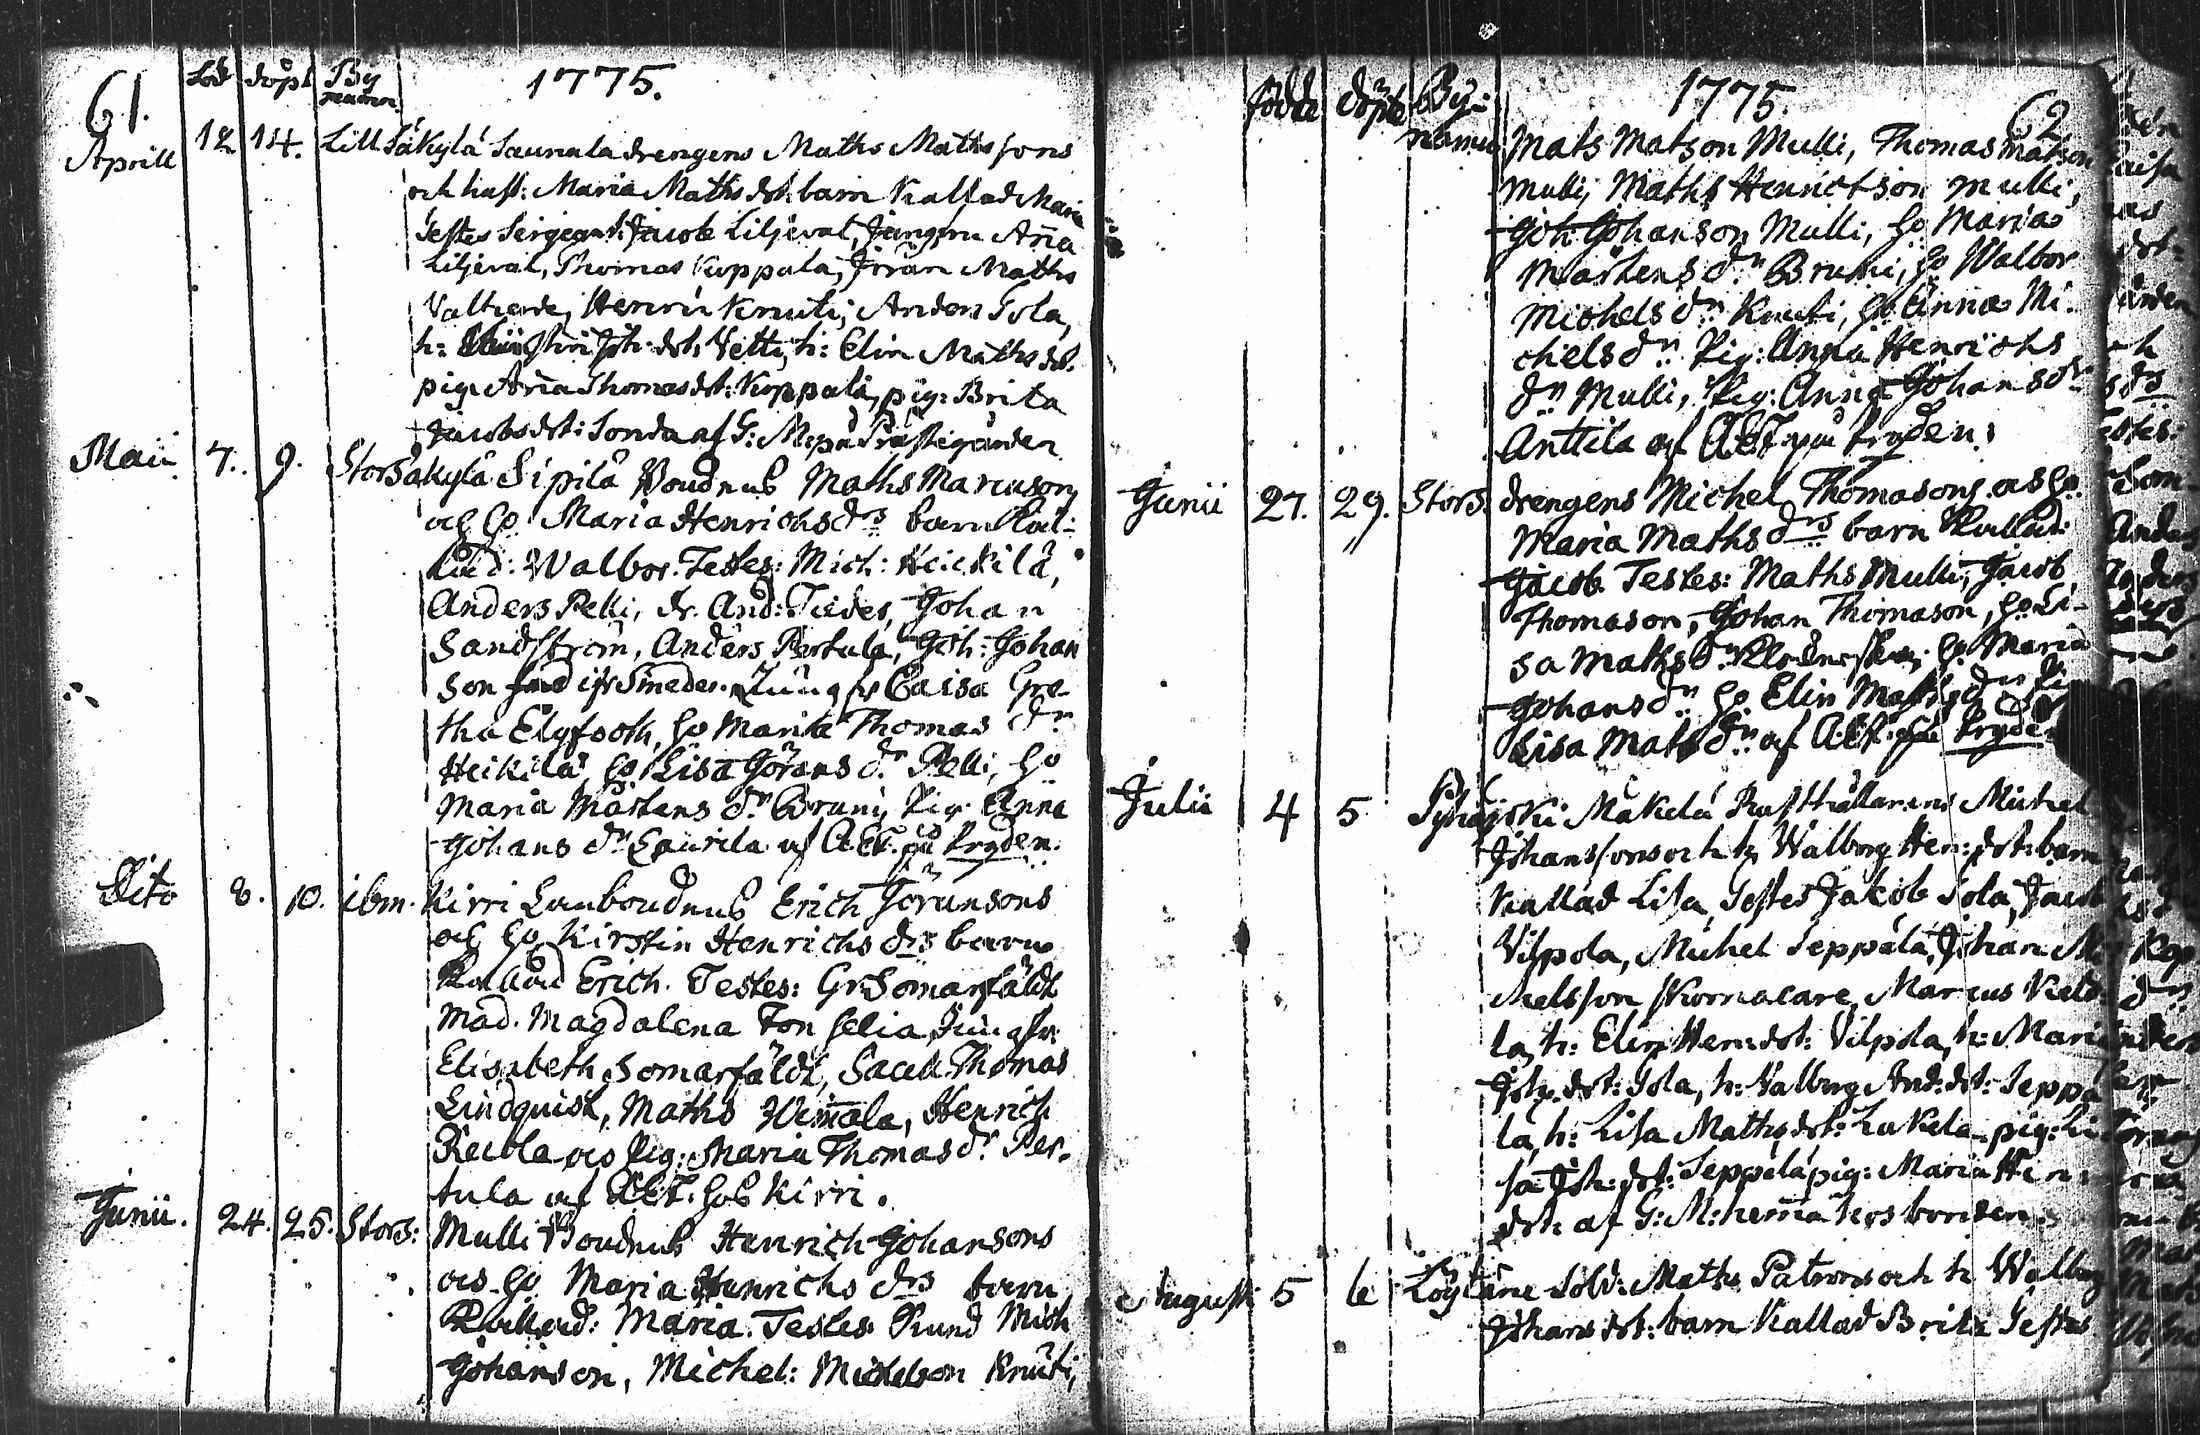 61.
föd döpt By namn 1775.
Aprill 12 14. Lill Säkylä Saunala drengens Maths Mathssons
och hust: Maria Maths dot: barn Kallad Maria
Testes Sergeant: Jacob Liljeval, Jungfru Aña
Liljeval, Thomas Koppala, Jöran Maths
Henric Knuti, Anders Iola,
h: Joh: dot: Vetti, h: Elin Maths dot.
pig: Aña Thomas dot: Koppala, pig: Brita
Jacobs dot: Sonda af G: M: på Prästegården
Maii 7. 9. StorSäkylä Sipilä Boudnus Maths Marcusons
och Ho Maria Henrichs drs barn Kal-
lad: Walbor. Testes: Mich: Heickilä,
Anders Pelli, dr. And: Tiedes, Johan
Sandström, Anders Pertula, Joh: Johan
son Smeder. Jungfr Caisa Gre
tha Elgfooth, Ho Marita Thomas dr
Heikilä, Ho Lisa Görans dr Pelli, Ho
Maria Mårtens dr Bruni, Pig: Anna
Johans dr Laurila af A:E:T: på Pryden.
Dito 8. 10. ibm. Kirri Lanboudnus Erich Göransons
och Ho Kirstin Henrichs drs barn
Kallad Erich. Testes: Gr: Somarfäldt
Mad. Magdalena Fonselia, Jungfr:
Elisabeth Somarfäldt, Sacell. Thomas
Lindquist, Maths Wim̃ala, Henrich
Recola och Pig: Maria Thomas dr Per-
tula af A:E:T: hos Kirri.
Junii. 24. 25. Stors: Mulli Boudnus Henrich Johansons
och Ho Maria Henrichs drs barn
Kallad: Maria. Testes Kund Mich
Johanson, Michel: Michelson Knuti,
födde döpte By-namn 1775. 62
Mats Matson Mulli, Thomas Matson
Mulli, Maths Henrictson Mulli,
Joh: Johanson Mulli, Ho Maria
Mårtens dr Bruni, Ho Walbor
Michels dr Knuti, Ho Anna Mi-
chels dr Pig: Anna Henrichs
dr Mulli, Pig: Anna Johans dr
Anttila af A:E:T: på Pryden.
Junii 27. 29. Stors. drengens Michel Thomasons och Ho
Maria Maths drs barn Kallad:
Jacob. Testes: Maths Mulli, Jacob
Thomason, Johan Thomason, Ho Li-
sa Maths dr Ho Maria
Johans dr Ho Elin Maths dr Pi
Lisa Mats dr af A:E:T: på Pryden
Julii 4 5 Pyhäjoki Mäkelä Rusthållarens Michel
Johanssons och h: Walborg Hen: dot: barn
Kallad Lisa, Testes Jakob Iola, Jacob
Vilpola, Michel Seppälä, Johan Mi
chelsson skomacare, Marcus Keld-
la, h: Elin Hen: dot: Vilpola, h: Maria
Joh: dot: Iola, h: Valborg And: dot: Seppä
lä, h: Lisa Maths dot: pig: Li
sa Joh: dot: Seppälä pig: Maria Hen
dot: af G: M: hem̃a hos bonden
Augusti 5 6 Löytäne Sold: Maths Patrons och h: Walborg
Johans dot: barn Kallad Brita Testes